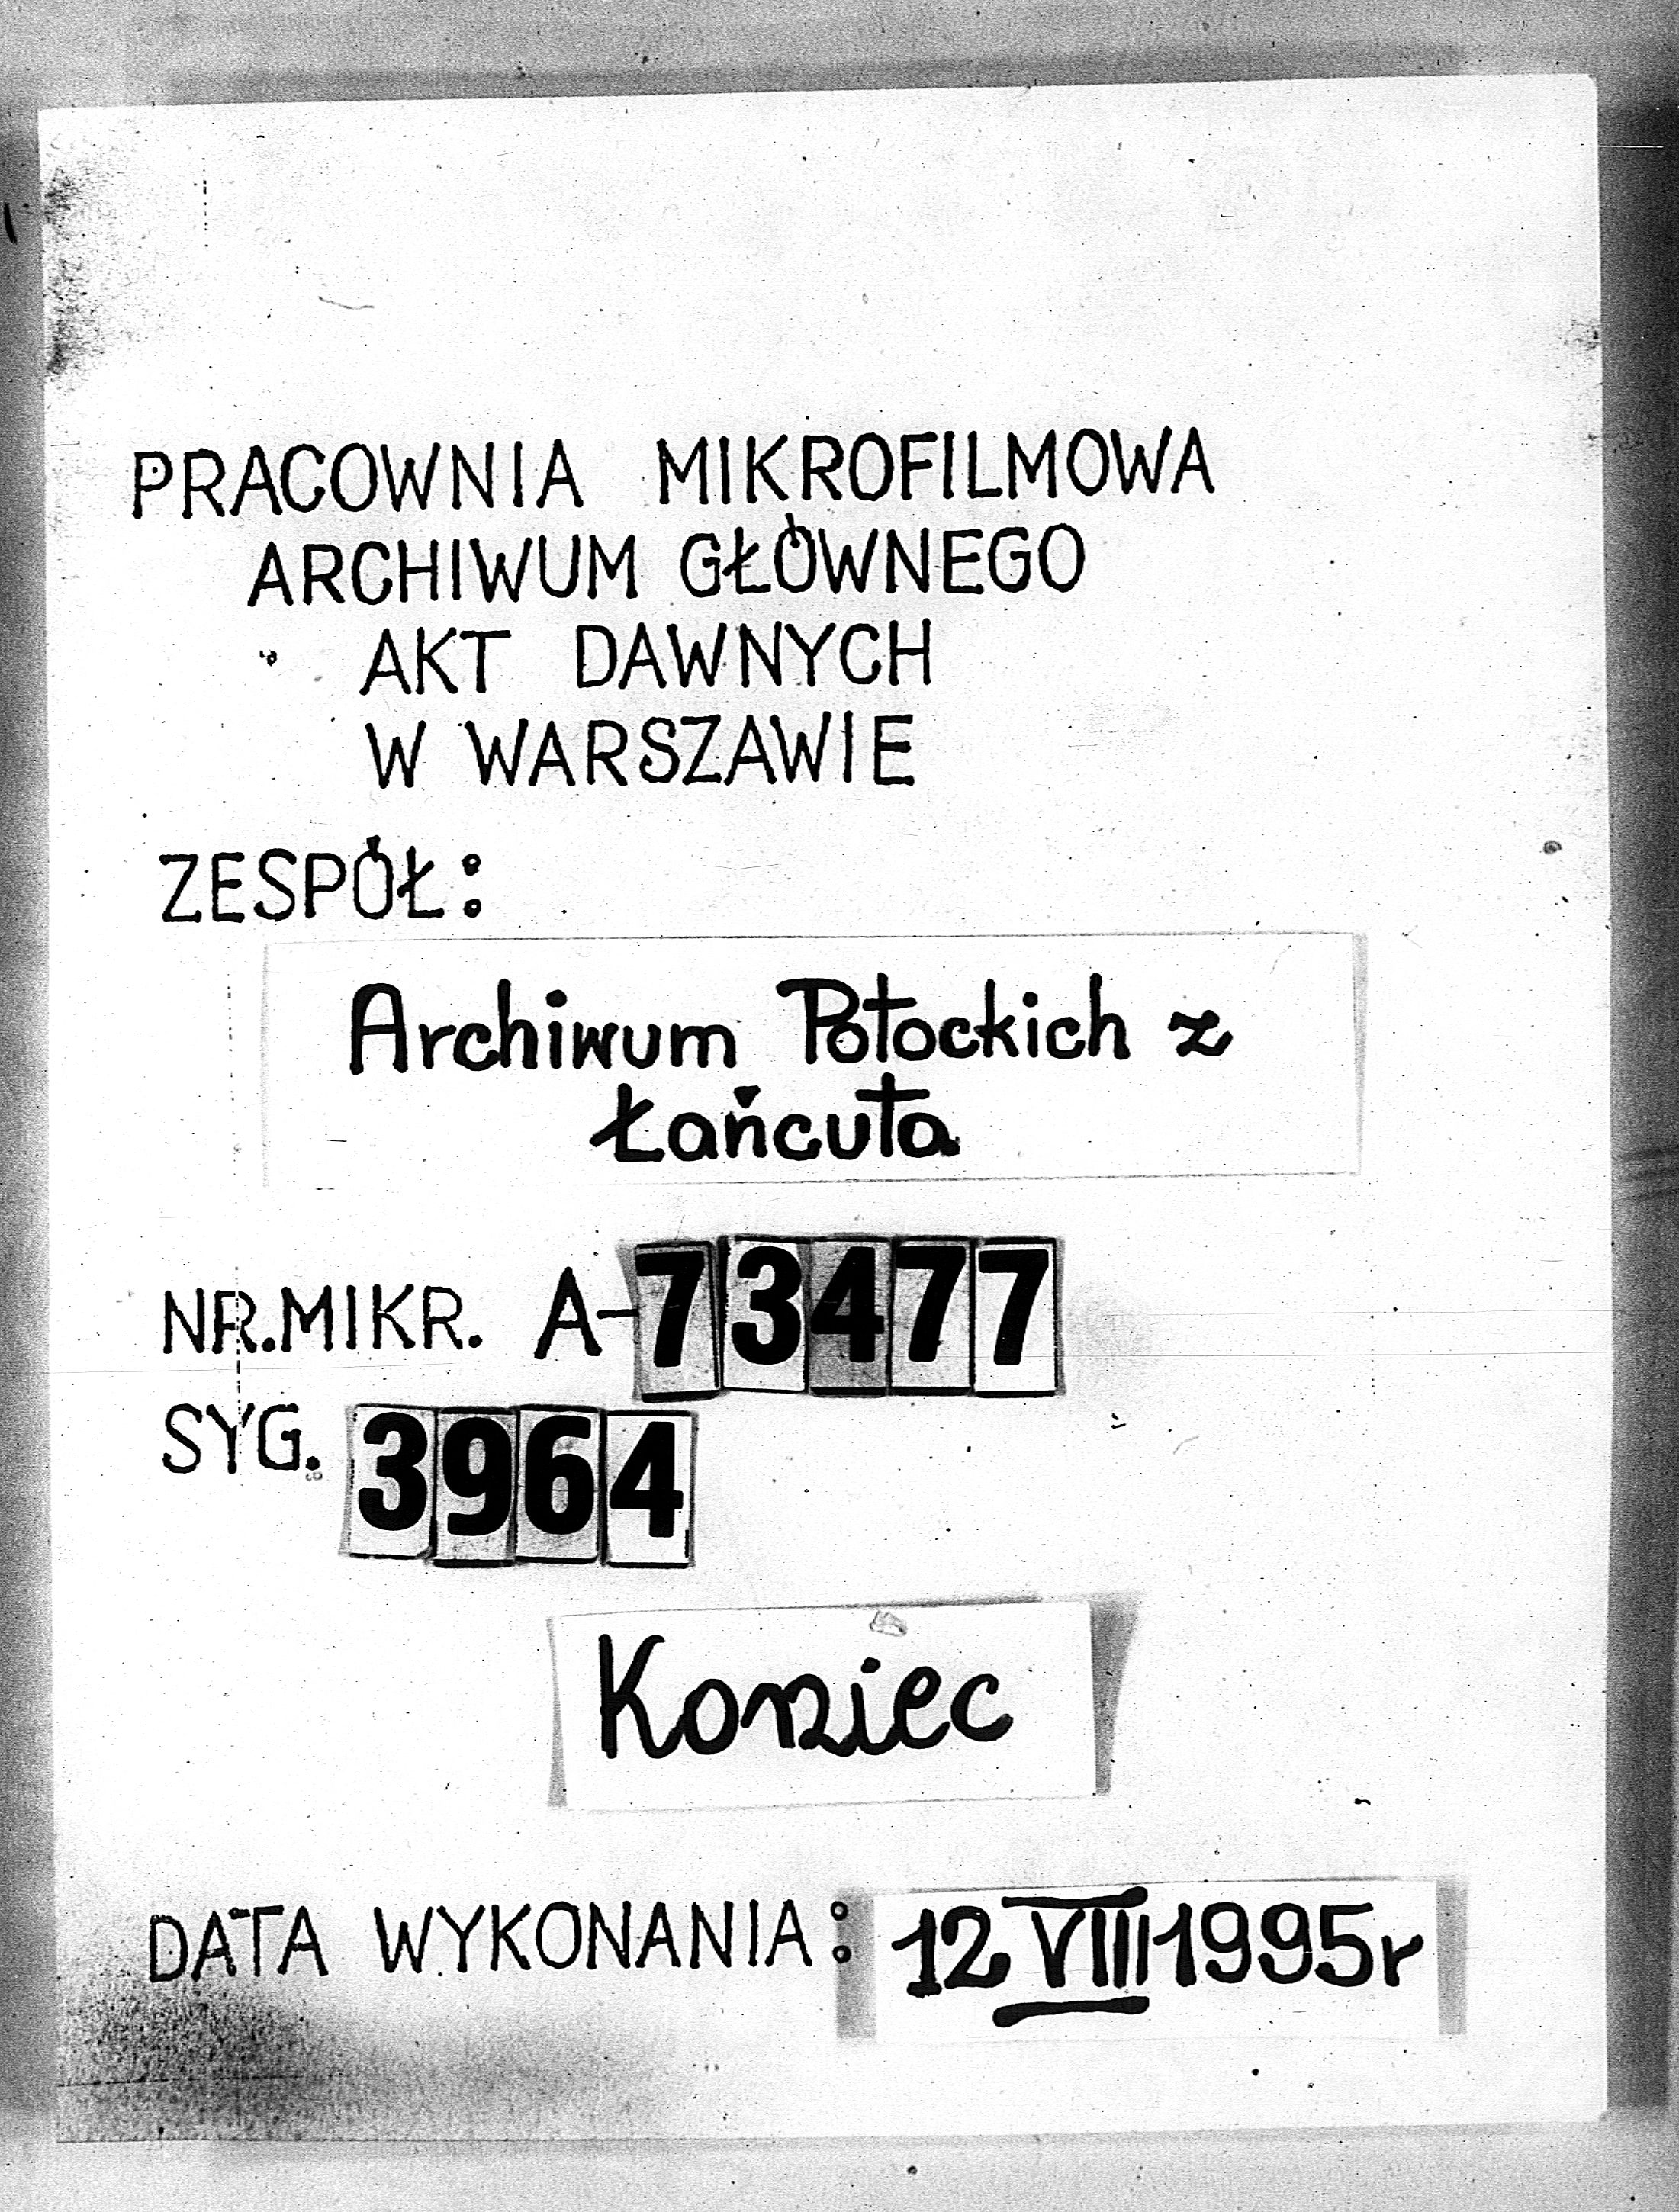 PRACOWNIA MIKROFILMOWA
ARCHIWUM GŁÓWNEGO
AKT DAWNYCH
W WARSZAWIE
ZESPÓŁ:
Archiwum Potockich z
Łańcuta
NR.MIKR. A-73477
SYG. 3964
Koniec
DATA WYKONANIA: 12 VIII 1995r